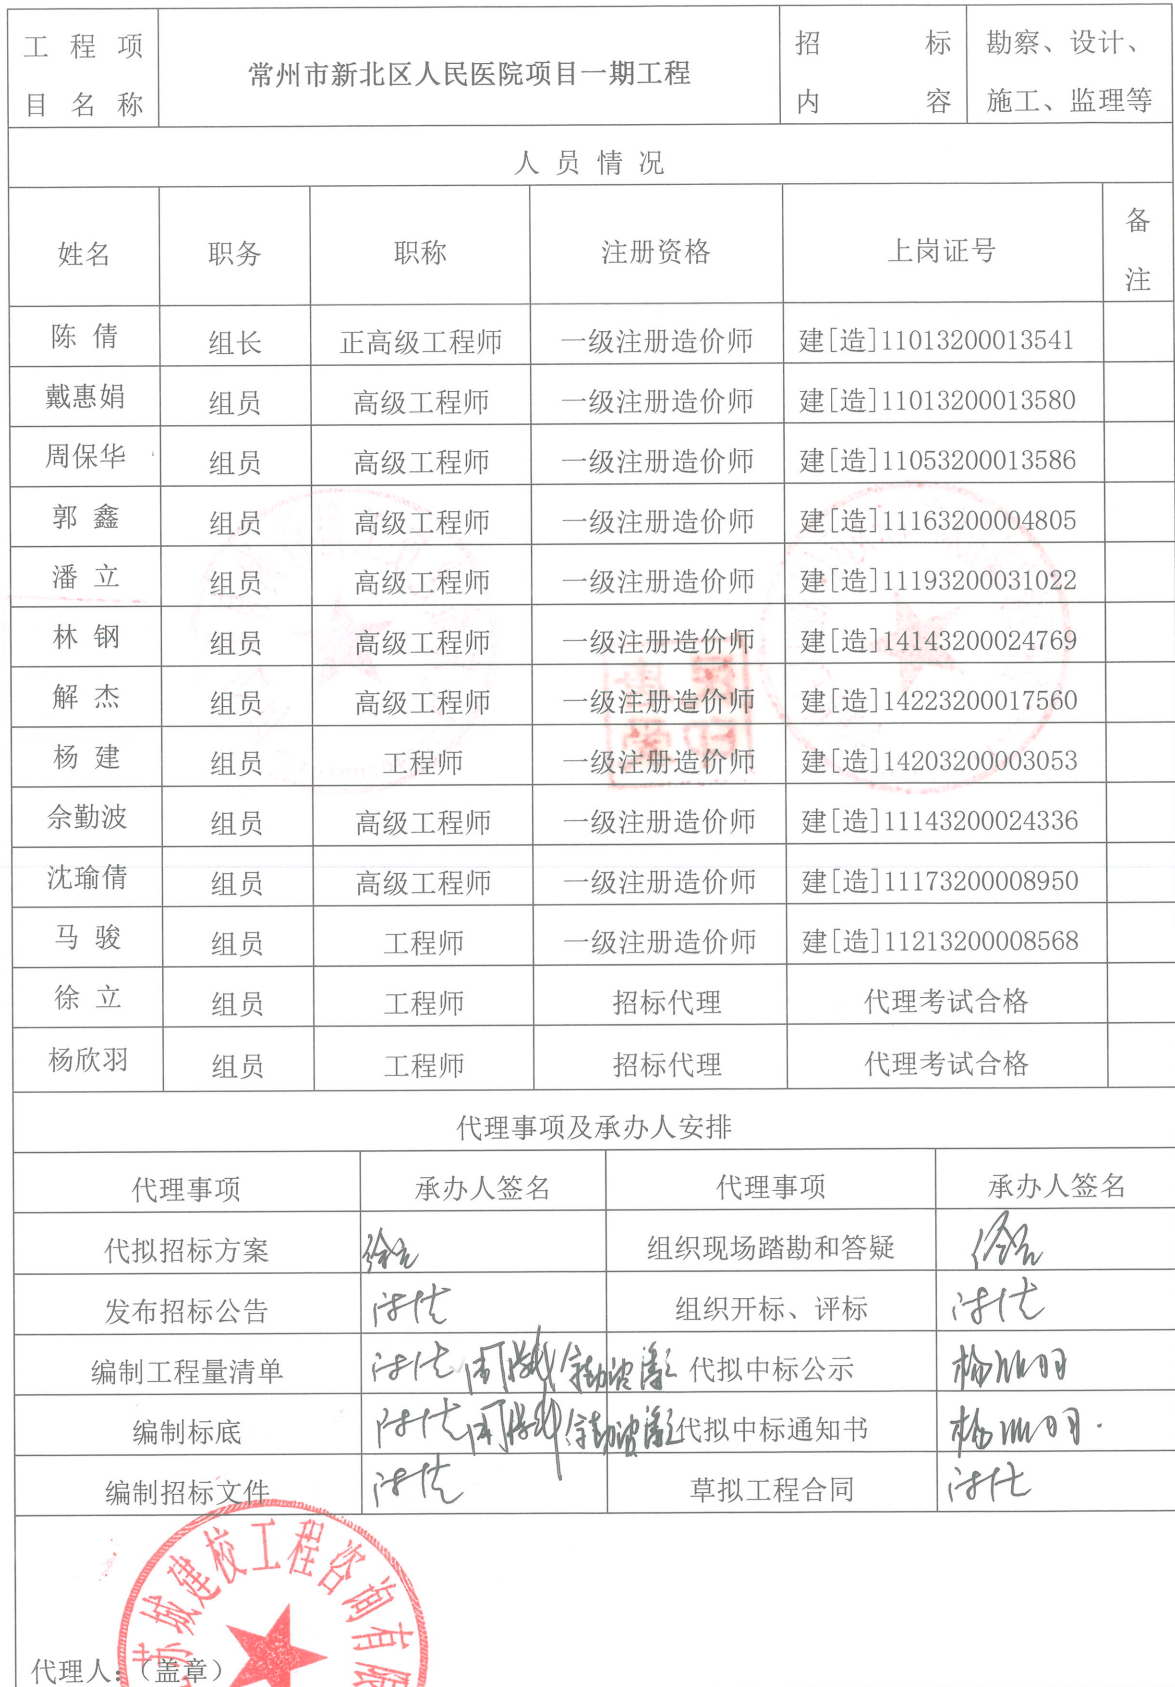 工程项目名称 常州市新北区人民医院项目一期工程 招标内容 勘察、设计、施工、监理等
人员情况
姓名 职务 职称 注册资格 上岗证号 备注
陈倩 组长 正高级工程师 一级注册造价师 建[造]11013200013541
戴惠娟 组员 高级工程师 一级注册造价师 建[造]11013200013580
周保华 组员 高级工程师 一级注册造价师 建[造]11053200013586
郭鑫 组员 高级工程师 一级注册造价师 建[造]11163200004805
潘立 组员 高级工程师 一级注册造价师 建[造]11193200031022
林钢 组员 高级工程师 一级注册造价师 建[造]14143200024769
解杰 组员 高级工程师 一级注册造价师 建[造]14223200017560
杨建 组员 工程师 一级注册造价师 建[造]14203200003053
佘勤波 组员 高级工程师 一级注册造价师 建[造]11143200024336
沈瑜倩 组员 高级工程师 一级注册造价师 建[造]11173200008950
马骏 组员 工程师 一级注册造价师 建[造]11213200008568
徐立 组员 工程师 招标代理 代理考试合格
杨欣羽 组员 工程师 招标代理 代理考试合格
代理事项及承办人安排
代理事项 承办人签名 代理事项 承办人签名
代拟招标方案 徐立 组织现场踏勘和答疑 徐立
发布招标公告 组织开标、评标
编制工程量清单 周保华 佘勤波 代拟中标公示 杨欣羽
编制标底 周保华 佘勤波 代拟中标通知书 杨欣羽
编制招标文件 草拟工程合同
苏城建校工程咨询有限
代理人：（盖章）